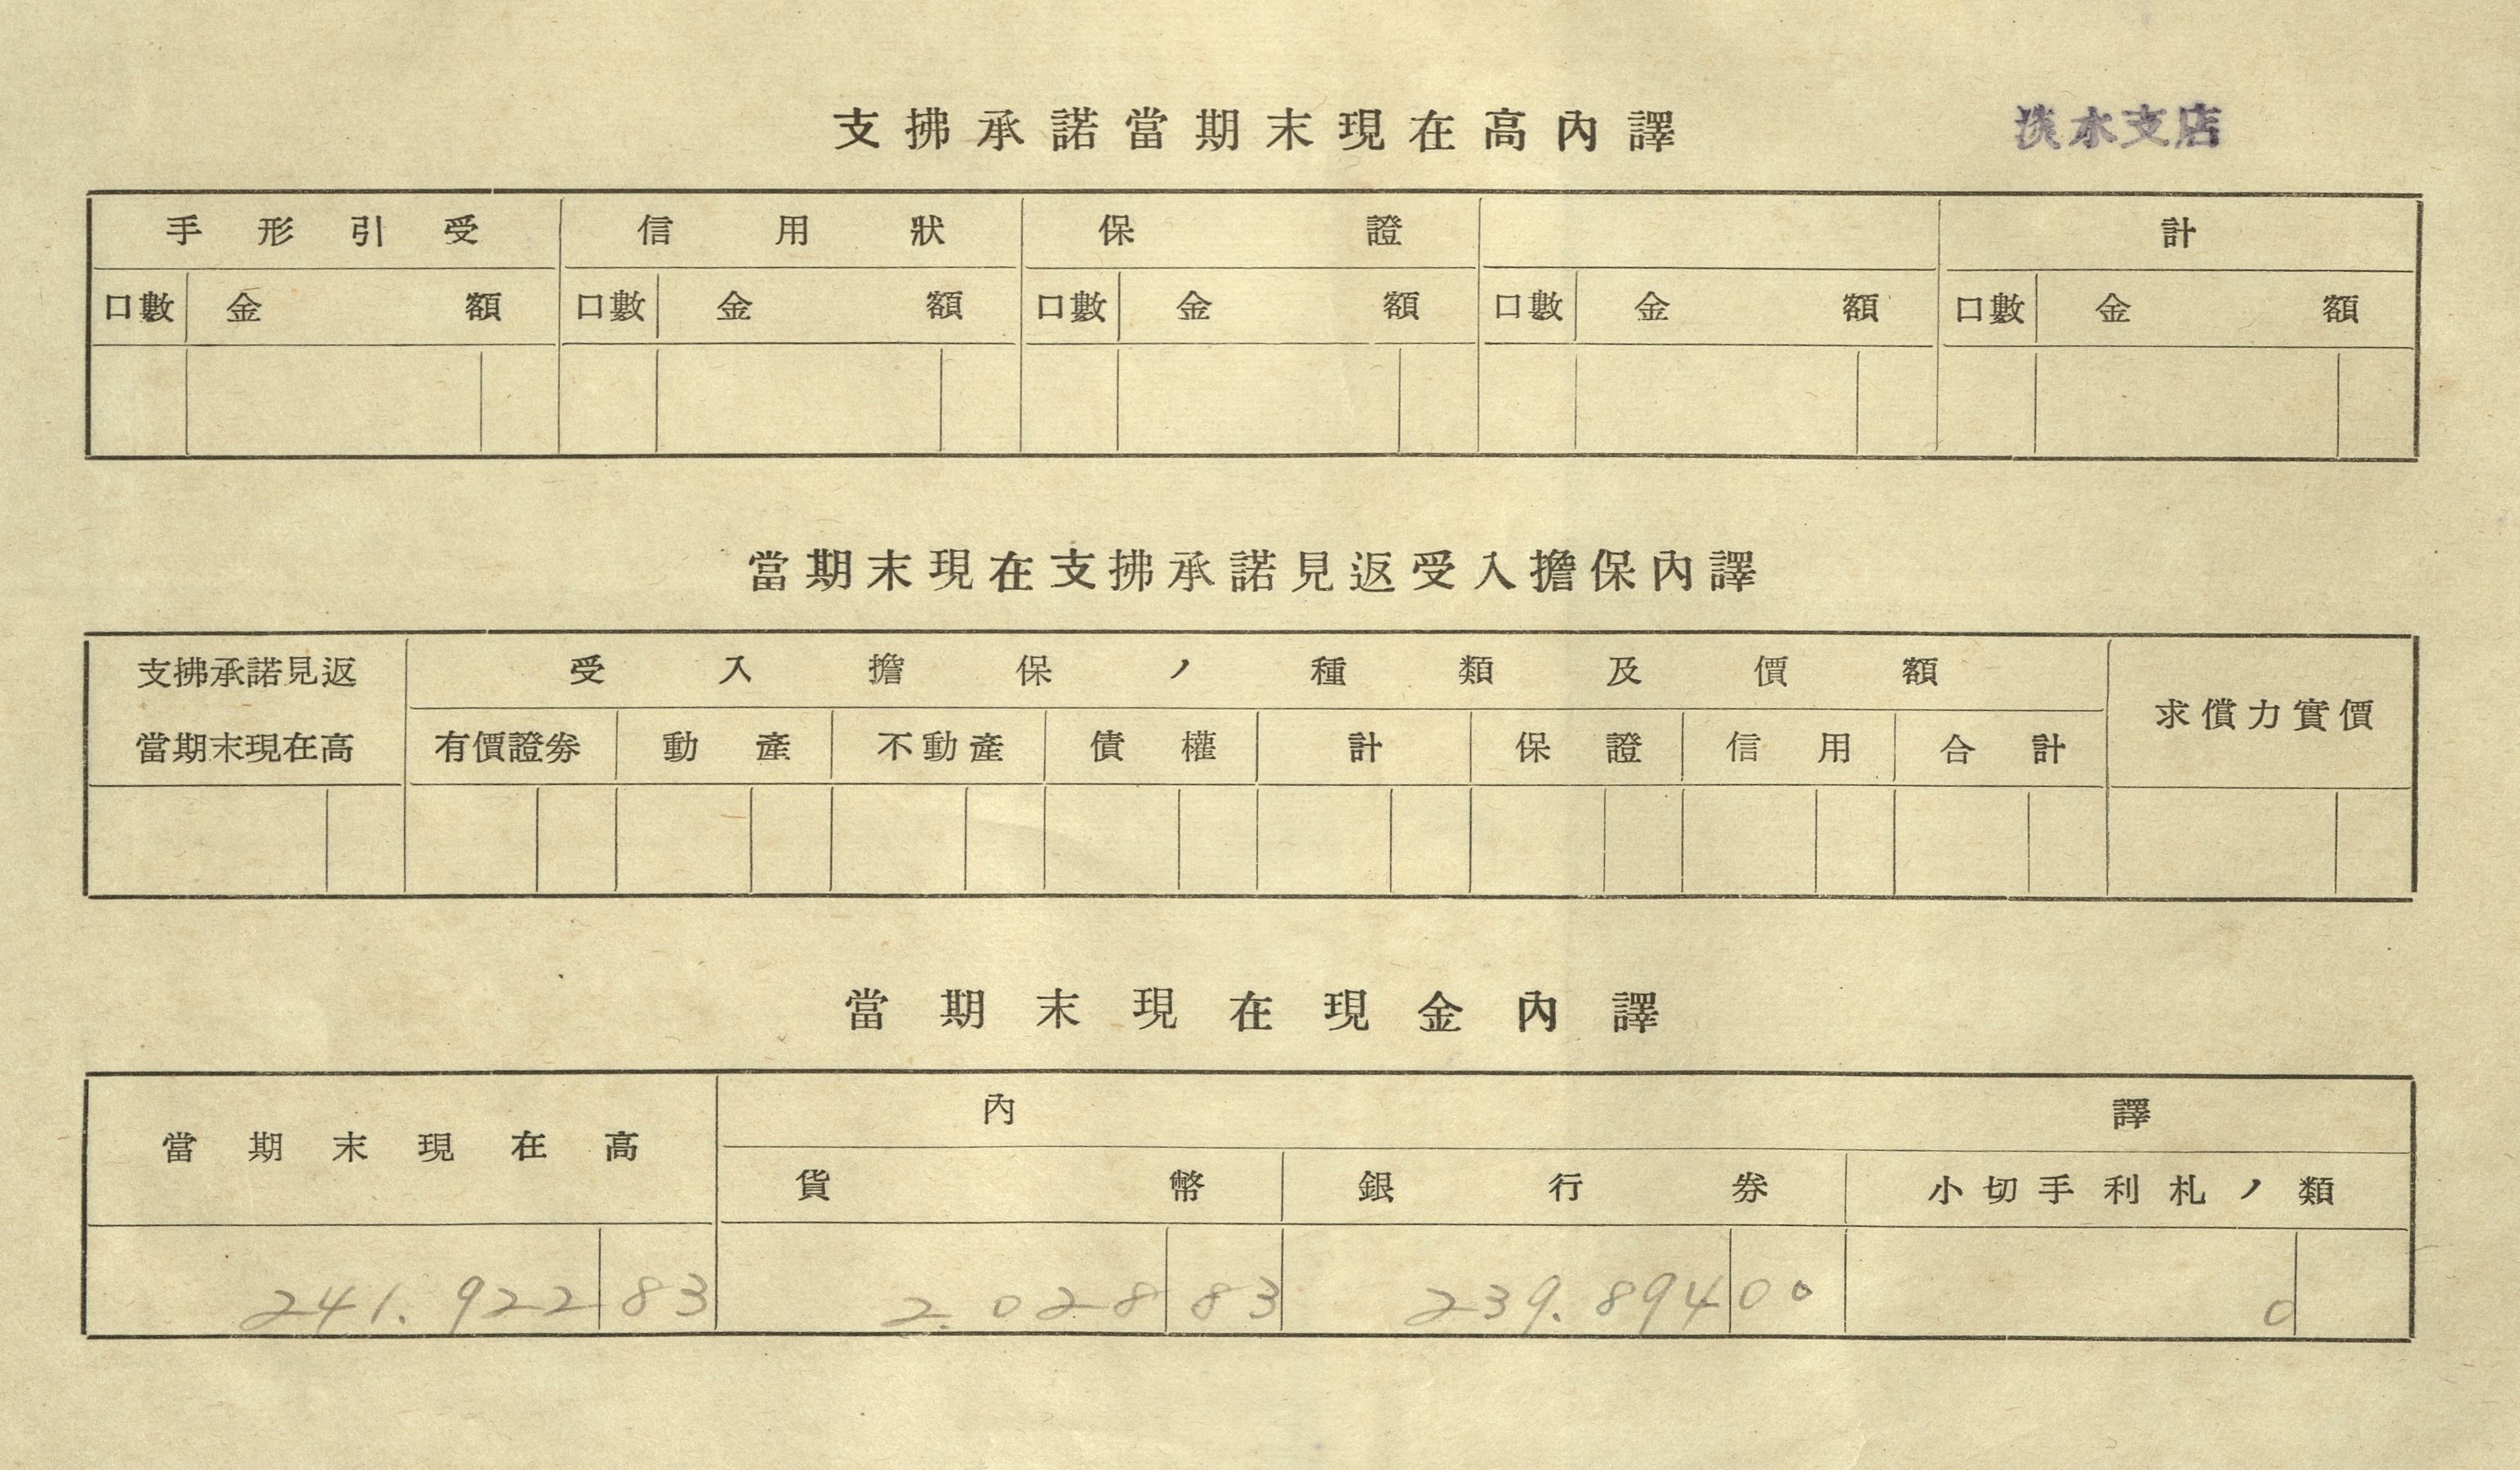 支拂承諾當期末現在高內譯
淡水支店
手形引受 信用狀 保證 計
口數 金額 口數 金額 口數 金額 口數 金額 口數 金額
當期末現在支拂承諾見返受入擔保內譯
支拂承諾見返 受入擔保ノ種類及價額 求償力實價
當期末現在高 有價證券 動產 不動產 債權 計 保證 信用 合計
當期末現在現金內譯
當期末現在高 內譯
貨幣 銀行券 小切手利札ノ類
241.922 83 2.028 83 239.894 00 0